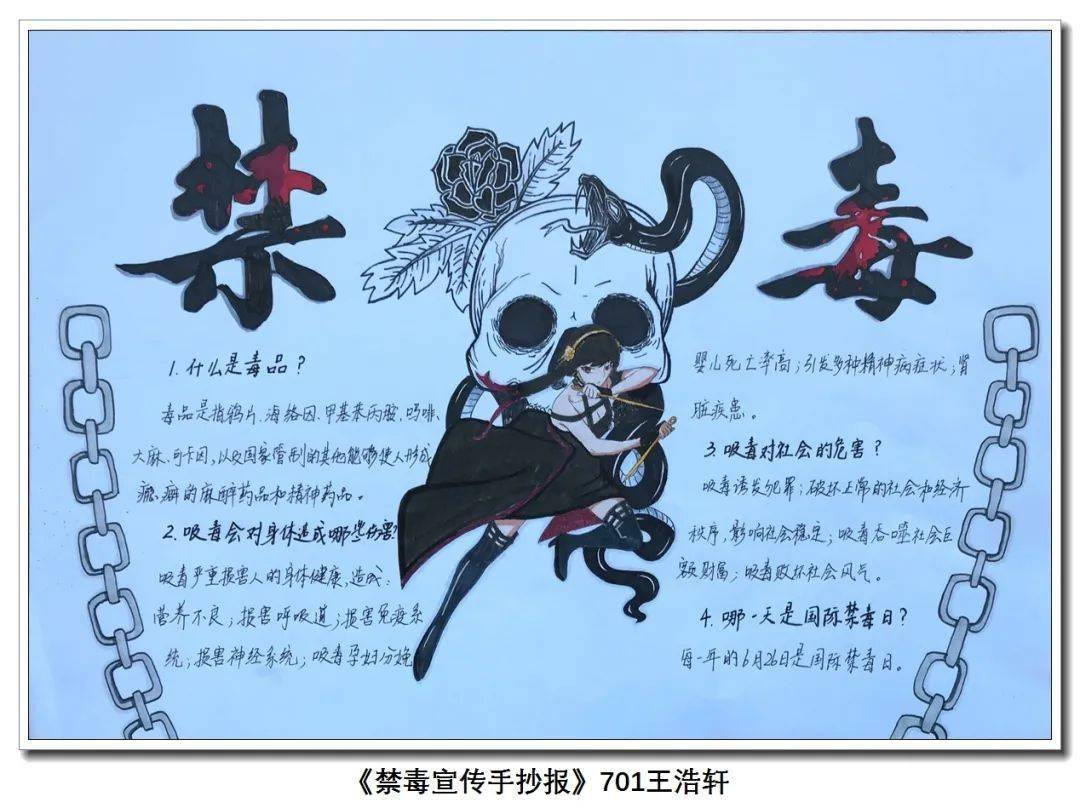 禁毒
1.什么是毒品？
毒品是指鸦片、海洛因、甲基苯丙胺、吗啡、
大麻、可卡因，以及国家管制的其他能够使人形成
瘾癖的麻醉药品和精神药品。
2.吸毒会对身体造成哪些伤害？
吸毒严重损害人的身体健康，造成：
营养不良；损害呼吸道；损害免疫系
统；损害神经系统；吸毒孕妇分娩
婴儿死亡率高；引发多种精神病症状；肾
脏疾患。
3.吸毒对社会的危害？
吸毒诱发犯罪；破坏正常的社会和经济
秩序，影响社会稳定；吸毒吞噬社会巨
额财富；吸毒败坏社会风气。
4.哪一天是国际禁毒日？
每一年的6月26日是国际禁毒日。
《禁毒宣传手抄报》701王浩轩